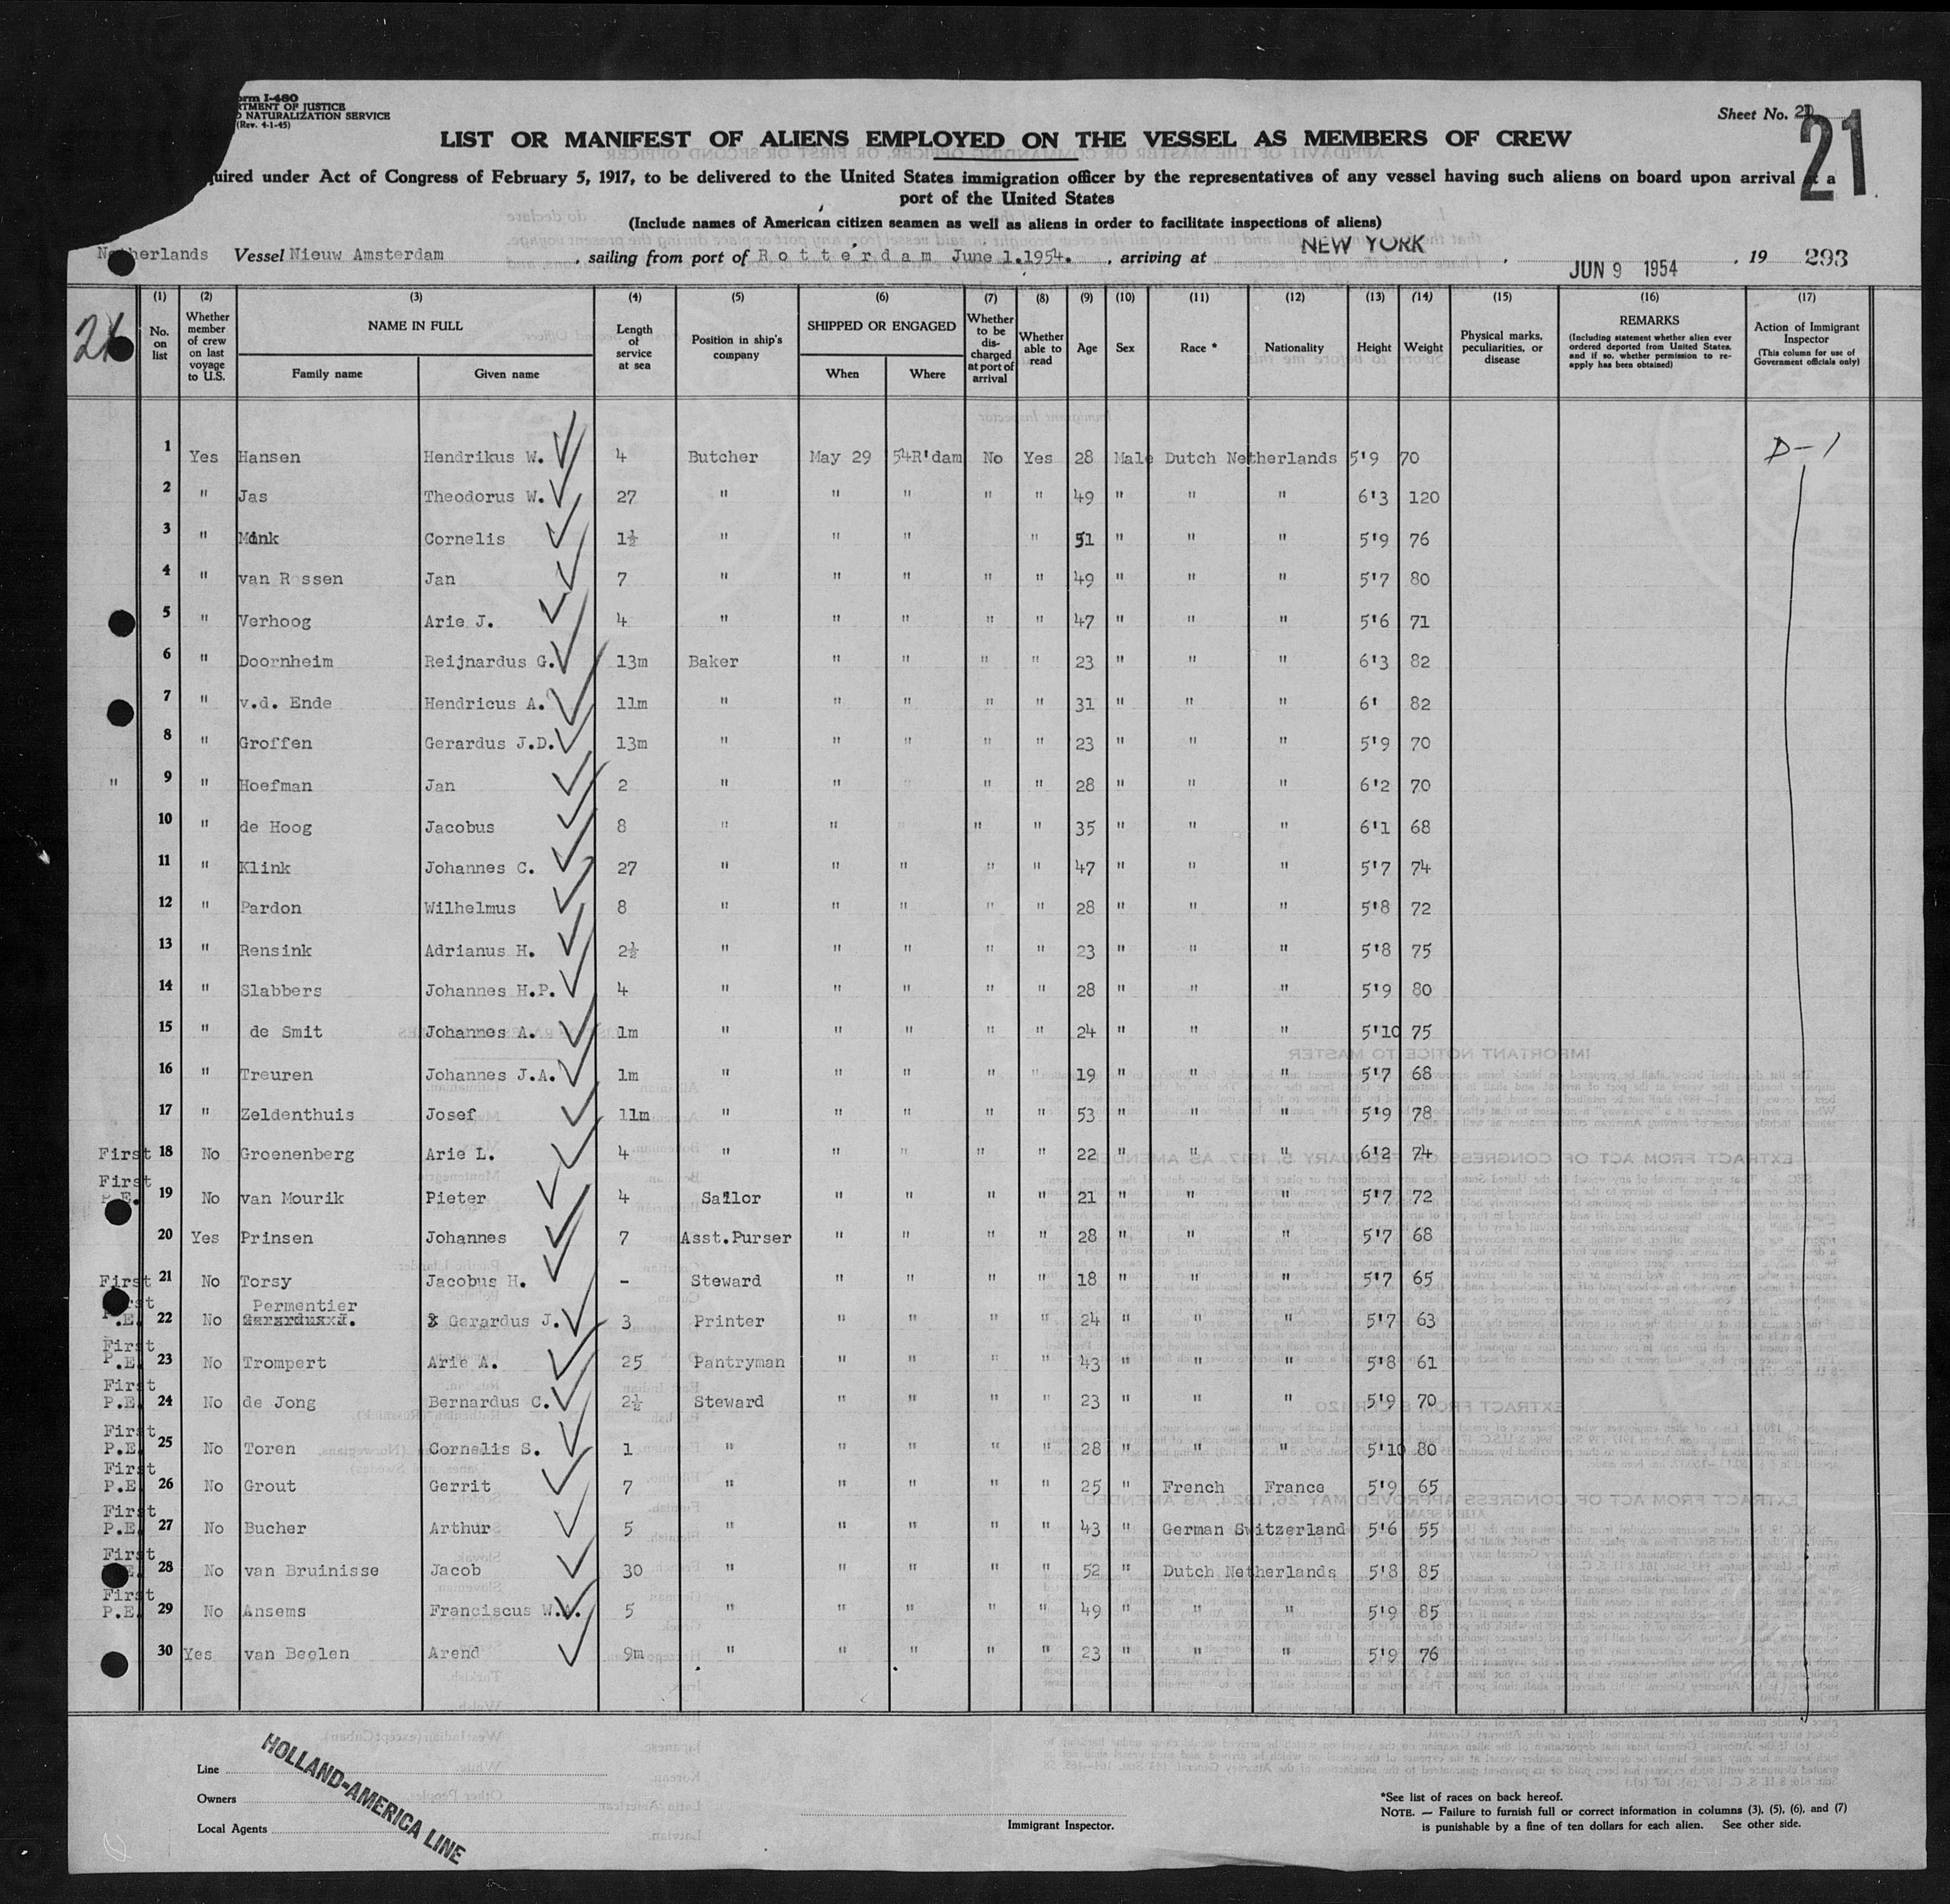 orm I-480
RTMENT OF JUSTICE
D NATURALIZATION SERVICE
(Rev. 4-1-45)
Sheet No. 21
21
LIST OR MANIFEST OF ALIENS EMPLOYED ON THE VESSEL AS MEMBERS OF CREW
quired under Act of Congress of February 5, 1917, to be delivered to the United States immigration officer by the representatives of any vessel having such aliens on board upon arrival at a
port of the United States
(Include names of American citizen seamen as well as aliens in order to facilitate inspections of aliens)
Netherlands Vessel Nieuw Amsterdam, sailing from port of Rotterdam June 1.1954., arriving at NEW YORK, JUN 9 1954, 19 293
(1) (2) (3) (4) (5) (6) (7) (8) (9) (10) (11) (12) (13) (14) (15) (16) (17)
No. on list
Whether member of crew on last voyage to U.S.
NAME IN FULL
Family name Given name
Length of service at sea
Position in ship's company
SHIPPED OR ENGAGED
When Where
Whether to be discharged at port of arrival
Whether able to read
Age Sex Race * Nationality Height Weight
Physical marks, peculiarities, or disease
REMARKS
(Including statement whether alien ever ordered deported from United States, and if so, whether permission to re-apply has been obtained)
Action of Immigrant Inspector
(This column for use of Government officials only)
1 Yes Hansen Hendrikus W. 4 Butcher May 29 54R'dam No Yes 28 Male Dutch Netherlands 5'9 70 D-1
2 " Jas Theodorus W. 27 " " " " " 49 " " " 6'3 120
3 " Mink Cornelis 1½ " " " " 51 " " " 5'9 76
4 " van R ssen Jan 7 " " " " " 49 " " " 5'7 80
5 " Verhoog Arie J. 4 " " " " " 47 " " " 5'6 71
6 " Doornheim Reijnardus G. 13m Baker " " " " 23 " " " 6'3 82
7 " v.d. Ende Hendricus A. 11m " " " " " 31 " " " 6' 82
8 " Groffen Gerardus J.D. 13m " " " " " 23 " " " 5'9 70
" 9 " Hoefman Jan 2 " " " " 28 " " " 6'2 70
10 " de Hoog Jacobus 8 " " " " 35 " " " 6'1 68
11 " Klink Johannes C. 27 " " " " " 47 " " " 5'7 74
12 " Pardon Wilhelmus 8 " " " " " 28 " " " 5'8 72
13 " Rensink Adrianus H. 2½ " " " " " 23 " " " 5'8 75
14 " Slabbers Johannes H.P. 4 " " " " " 28 " " " 5'9 80
15 " de Smit Johannes A. 1m " " " " " 24 " " " 5'10 75
16 " Treuren Johannes J.A. 1m " " " " " 19 " " " 5'7 68
17 " Zeldenthuis Josef 11m " " " " " 53 " " " 5'9 78
First 18 No Groenenberg Arie L. 4 " " " " " 22 " " " 6'2 74
First
P.E. 19 No van Mourik Pieter 4 Sailor " " " " 21 " " " 5'7 72
20 Yes Prinsen Johannes 7 Asst.Purser " " " " 28 " " " 5'7 68
First 21 No Torsy Jacobus H. - Steward " " " " 18 " " " 5'7 65
First Permentier
P.E. 22 No Gerardus J. Gerardus J. 3 Printer " " " " 24 " " " 5'7 63
First
P.E. 23 No Trompert Arie A. 25 Pantryman " " " " 43 " " " 5'8 61
First
P.E. 24 No de Jong Bernardus C. 2½ Steward " " " " 23 " " " 5'9 70
First
P.E. 25 No Toren Cornelis S. 1 " " " " " 28 " " " 5'10 80
First
P.E 26 No Grout Gerrit 7 " " " " " 25 " French France 5'9 65
First
P.E. 27 No Bucher Arthur 5 " " " " " 43 " German Switzerland 5'6 55
First
E. 28 No van Bruinisse Jacob 30 " " " " " 52 " Dutch Netherlands 5'8 85
First
P.E. 29 No Ansems Franciscus W.A. 5 " " " " " 49 " " " 5'9 85
30 Yes van Beelen Arend 9m " " " " " 23 " " " 5'9 76
Line
Owners
Local Agents
HOLLAND-AMERICA LINE
Immigrant Inspector.
*See list of races on back hereof.
NOTE. — Failure to furnish full or correct information in columns (3), (5), (6), and (7)
is punishable by a fine of ten dollars for each alien. See other side.